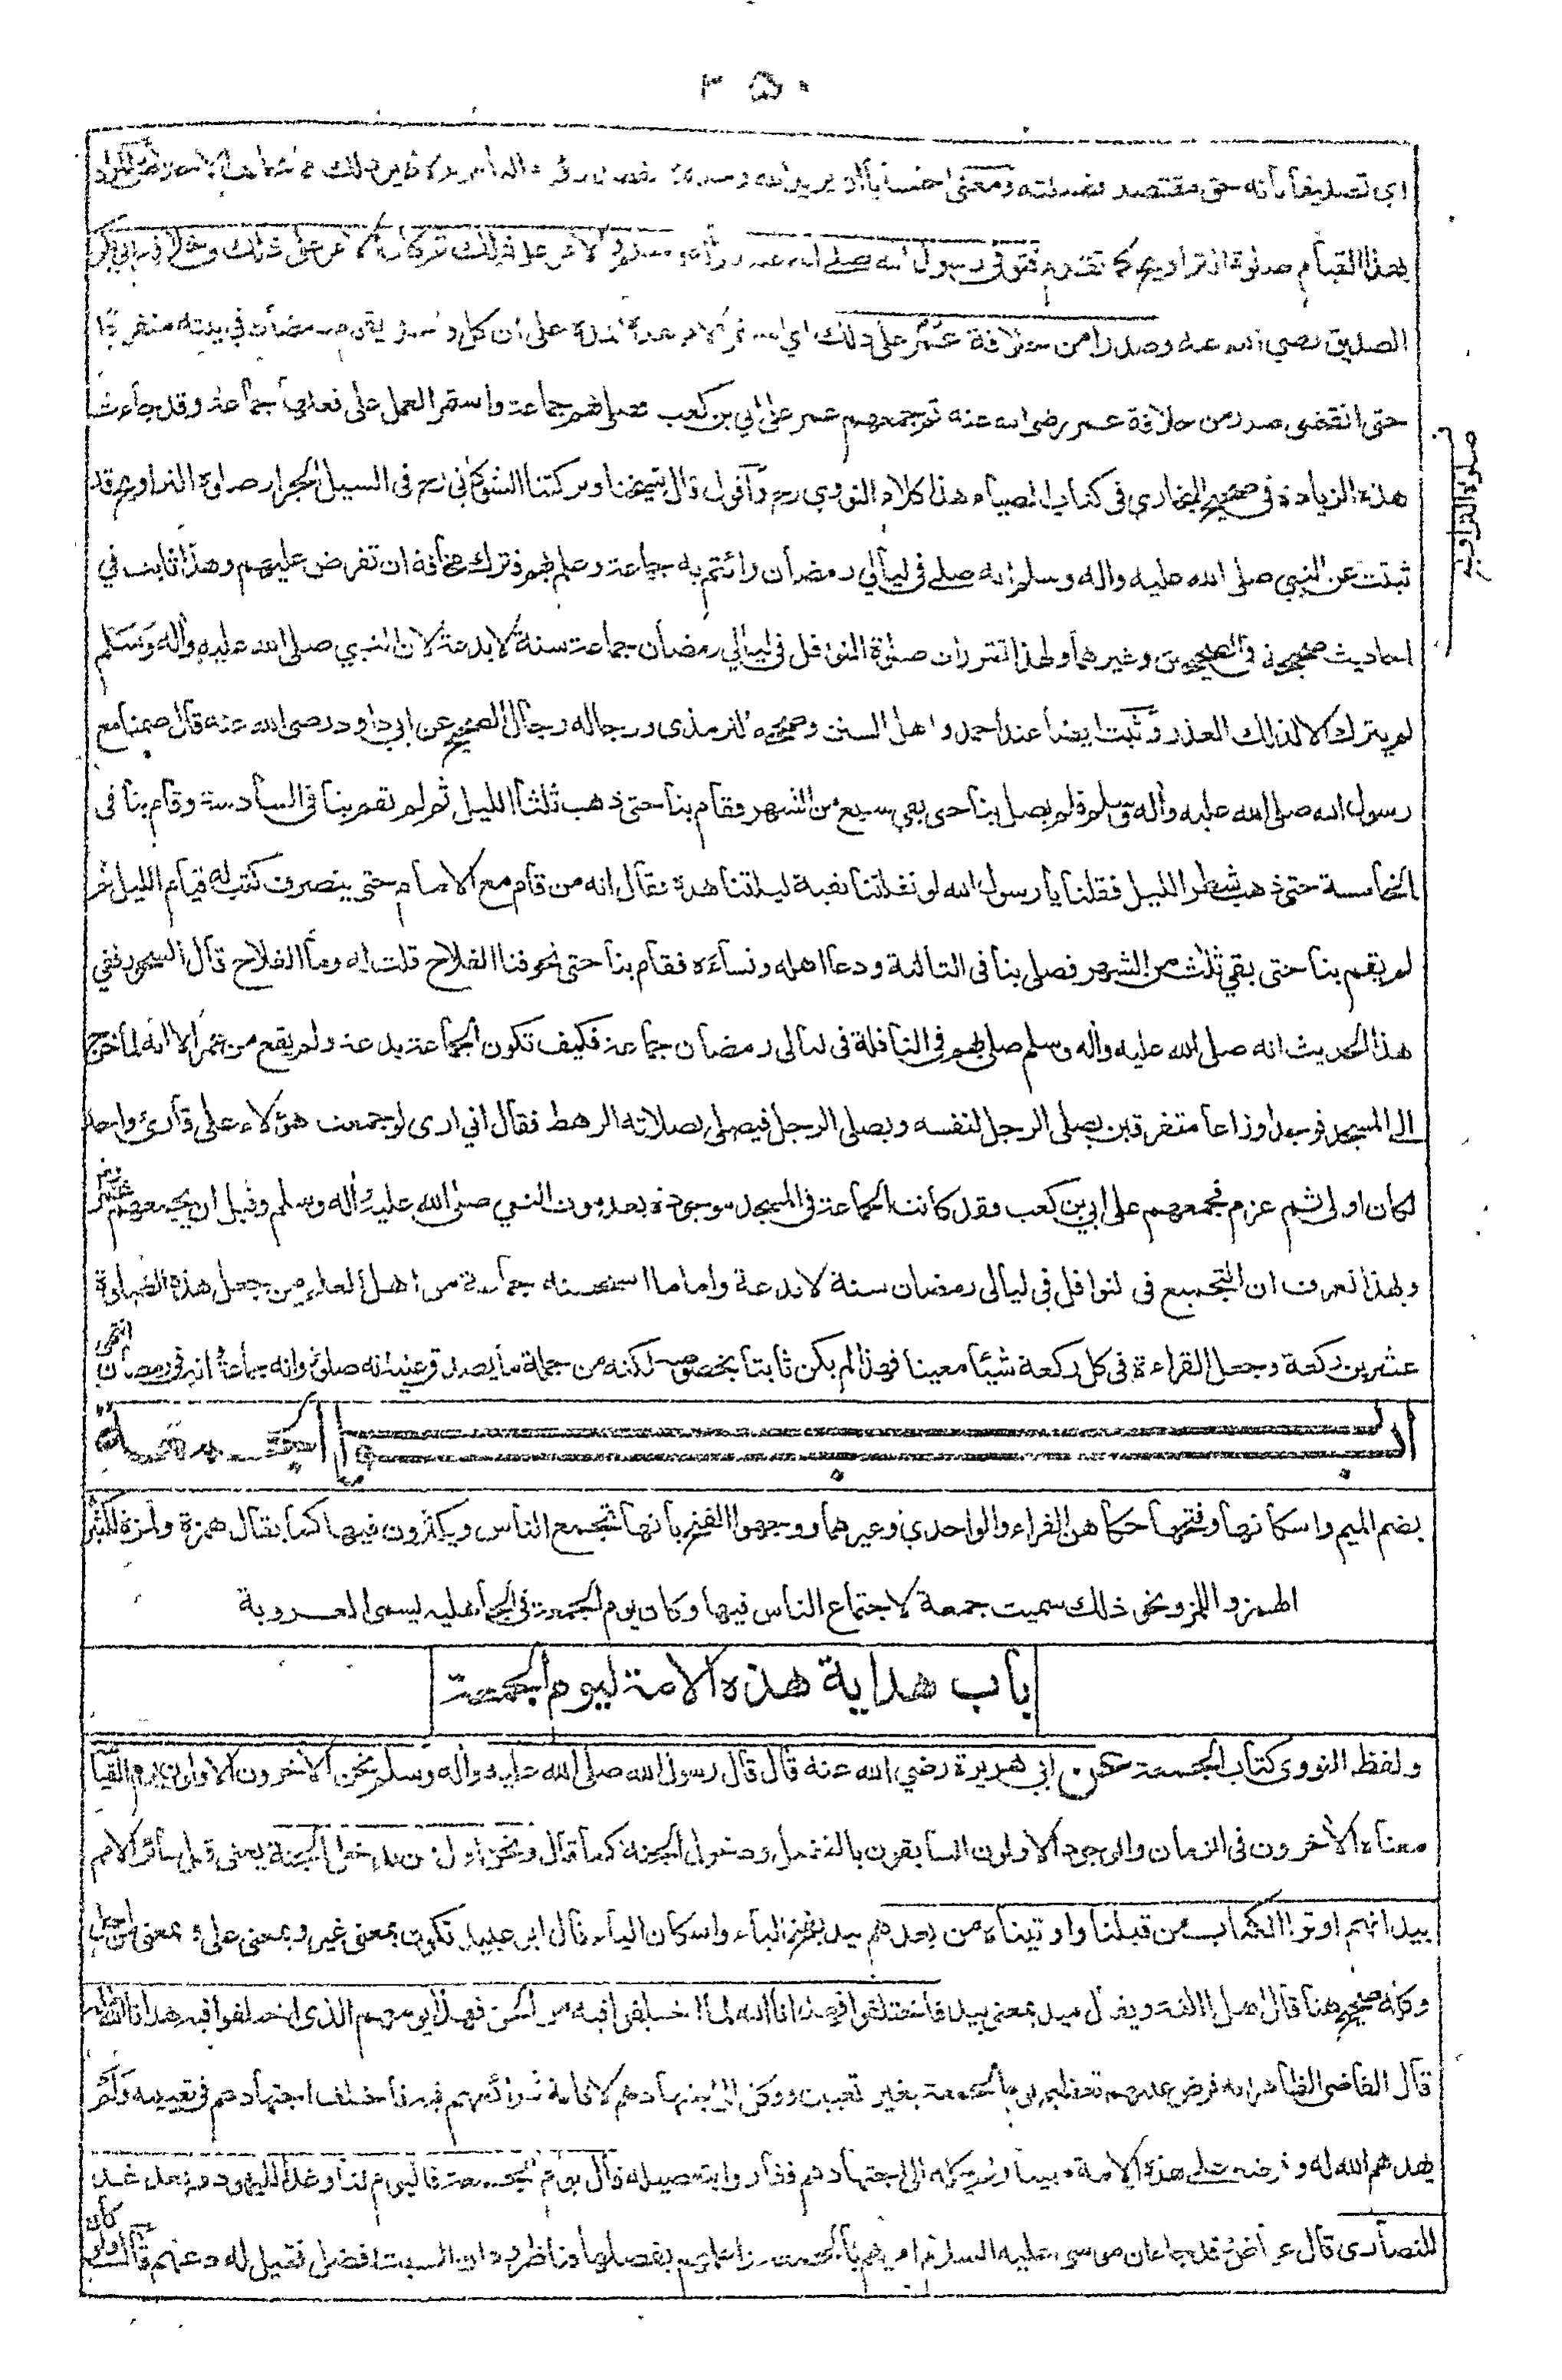 ٣٥٠
اي تصديقا بأنه حق مقتصد فضيلته ومعنى احتسابا ان يريد الله وحده
بهذا القيام صلوة التراويح كما تقدم فتوفى رسول الله صلى الله عليه وآله وسلم والامر على ذلك ثم كان الامر على ذلك وخلافة ابي بكر
الصديق رضي الله عنه وصدرا من خلافة عمر على ذلك اي استمر الامر هذه المدة على ان كل واحد يقوم رمضان في بيته منفردا
حتى انقضى صدر من خلافة عمر رضى الله عنه ثم جمعهم عمر على ابي بن كعب فصلى بهم جماعة واستمر العمل على فعلها جماعة وقد جاءت
هذه الزيادة فى صحيح البخاري فى كتاب الصيام هذا كلام النووي رح وأقول قال شيخنا وبركتنا الشوكانى رح فى السيل الجرار صلوة التراويح قد
ثبتت عن النبي صلى الله عليه واله وسلم انه صلى فى ليالي رمضان وائتم به جماعة وعلم بهم فترك مخافة ان تفرض عليهم وهذا ثابت في
احاديث صحيحة فى الصحيحين وغيرهما ولهذا تقرر ان صلوة النوافل فى ليالي رمضان جماعة سنة لا بدعة لان النبي صلى الله عليه وآله وسلم
لم يترك الا لذلك العذر وثبت ايضا عند احمد واهل السنن وصححه الترمذى ورجاله رجال الصحيح عن ابي داود رضى الله عنه قال صمنا مع
رسول الله صلى الله عليه وآله وسلم فلم يصل بنا حتى بقي سبع من الشهر فقام بنا حتى ذهب ثلثا الليل ثم لم تقم بنا فى السادسة وقام بنا فى
الخامسة حتى ذهب شطر الليل فقلنا يا رسول الله لو نفلتنا بقية ليلتنا هذه فقال انه من قام مع الامام حتى ينصرف كتب له قيام الليل ثم
لم يقم بنا حتى بقي ثلث من الشهر فصلى بنا فى الثالثة ودعا اهله ونساءه فقام بنا حتى تخوفنا الفلاح قلت له وما الفلاح قال السحور ففي
هذا الحديث انه صلى الله عليه وآله وسلم صلى بهم فى النافلة فى ليالى رمضان جماعة فكيف تكون الجماعة بدعة ولم يقع من عمر الا انه لما خرج
الى المسجد فوجد اوزاعا متفرقين يصلى الرجل لنفسه ويصلى الرجل فيصلى بصلاته الرهط فقال اني ارى لو جمعت هؤلاء على قارئ واحد
لكان اولى ثم عزم فجمعهم على ابي بن كعب فقد كانت الجماعة فى المسجد موجودة بعد موت النبي صلى الله عليه وآله وسلم وقبل ان يجمعهم عمر رض
وبهذا تعرف ان التجميع فى النوافل في ليالى رمضان سنة لا بدعة واما ما استحسنه جماعة من اهل العلم من جعل هذه الصلوة
عشرين ركعة وجعل القراءة فى كل ركعة شيئا معينا فهذا لم يكن ثابتا بخصوصه لكنه من جملة ما يصدق عليه انه صلوة وانه جماعة انه فى رمضان انتهى
صلوة التراويح
ابواب الجمعة
بضم الميم واسكانها وفتحها حكاهن الفراء والواحدي وغيرهما ووجهوا الفتح بانها تجمع الناس ويكثرون فيها كما يقال همزة ولمزة لكثرة
الهمز واللمز ونحو ذلك سميت جمعة لاجتماع الناس فيها وكان يوم الجمعة فى الجاهليه يسمى العروبة
باب هداية هذه الامة ليوم الجمعة
ولفظ النووى كتاب الجمعة عن ابي هريرة رضي الله عنه قال قال رسول الله صلى الله عليه وآله وسلم نحن الآخرون الاولون يوم القيا
معناه الآخرون فى الزمان والوجود الاولون السابقون بالفضل ودخول الجنة كما قال ونحن اول من يدخل الجنة يعنى قبل سائر الامم
بيد انهم اوتوا الكتاب من قبلنا واوتيناه من بعدهم بيد بفتح الباء واسكان الياء قال ابو عبيد تكون بمعنى غير وبمعنى على وبمعنى من اجل
وكله صحيح هنا قال اهل اللغة ويقال ميد بمعنى بيد فاختلفوا فهدانا الله لما اختلفوا فيه من الحق فهذا يومهم الذى اختلفوا فيه هدانا الله له
قال القاضى الظاهر انه فرض عليهم تعظيم يوم الجمعة بغير تعيين ووكل الى اجتهادهم لاقامة شرائعهم فيه فاختلف اجتهادهم فى تعيينه ولم
يهدهم الله له وفرضه على هذه الامة مبينا ولم يكله الى اجتهادهم ففازوا بتفضيله قال يوم الجمعة فاليوم لنا وغدا لليهود وبعد غد
للنصارى قال ع وقد جاء ان موسى عليه السلام امرهم بالجمعة واعلمهم بفضلها فناظروه ان السبت افضل فقيل له دعهم قالوا ولو كان